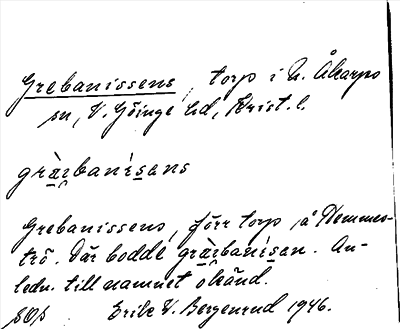 Grebanissens, torp i N. Åkarps
sn, V. Göinge hd, Krist. l.
gràrbanisans
Grebanissens, förr torp på Hemmes-
trö. Där bodde gràrbanisan. An-
ledn. till namnet okänd.
Eric V. Bergenrud 1946.